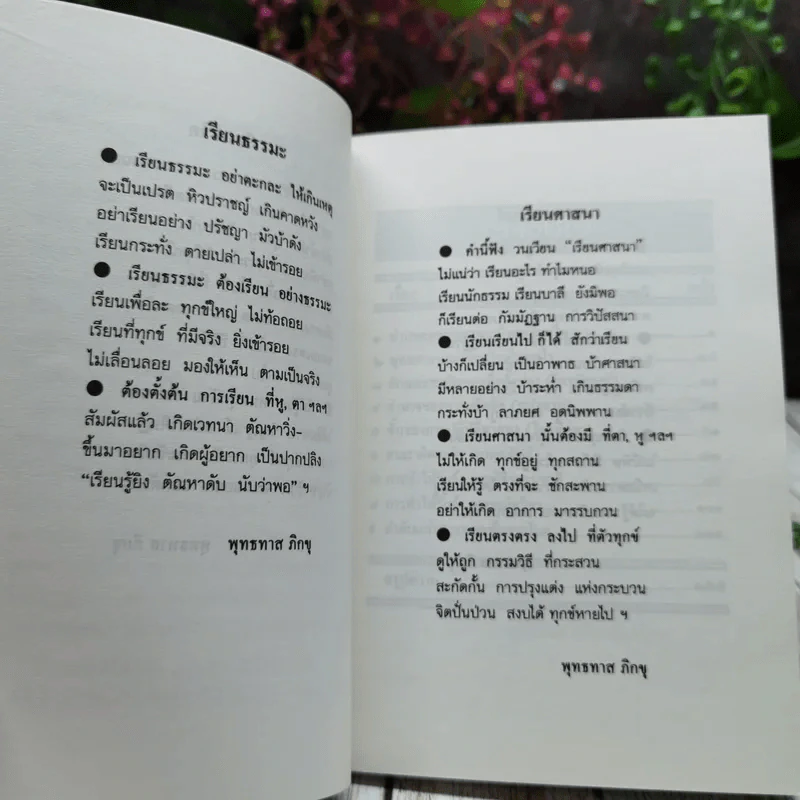 เรียนธรรมะ
● เรียนธรรมะ อย่าตะกละ ให้เกินเหตุ
จะเป็นเปรต หิวปราชญ์ เกินคาดหวัง
อย่าเรียนอย่าง ปรัชญา มัวบ้าดัง
เรียนกระทั่ง ตายเปล่า ไม่เข้ารอย
● เรียนธรรมะ ต้องเรียน อย่างธรรมะ
เรียนเพื่อละ ทุกข์ใหญ่ ไม่ท้อถอย
เรียนที่ทุกข์ ที่มีจริง ยิ่งเข้ารอย
ไม่เลื่อนลอย มองให้เห็น ตามเป็นจริง
● ต้องตั้งต้น การเรียน ที่หู, ตา ฯลฯ
สัมผัสแล้ว เกิดเวทนา ตัณหาวิ่ง-
ขึ้นมาอยาก เกิดผู้อยาก เป็นปากปลิง
“เรียนรู้ยิง ตัณหาดับ นับว่าพอ” ฯ
พุทธทาส ภิกขุ
เรียนศาสนา
● คำนี้ฟัง วนเวียน “เรียนศาสนา”
ไม่แน่ว่า เรียนอะไร ทำไมหนอ
เรียนนักธรรม เรียนบาลี ยังมิพอ
ก็เรียนต่อ กัมมัฏฐาน การวิปัสสนา
● เรียนเรียนไป ก็ได้ สักว่าเรียน
บ้างก็เปลี่ยน เป็นอาพาธ บ้าศาสนา
มีหลายอย่าง บ้าระห่ำ เกินธรรมดา
กระทั่งบ้า ลาภยศ อดนิพพาน
● เรียนศาสนา นั้นต้องมี ที่ตา, หู ฯลฯ
ไม่ให้เกิด ทุกข์อยู่ ทุกสถาน
เรียนให้รู้ ตรงที่จะ ชักสะพาน
อย่าให้เกิด อาการ มารรบกวน
● เรียนตรงตรง ลงไป ที่ตัวทุกข์
ดูให้ถูก กรรมวิธี ที่กระสวน
สะกัดกั้น การปรุงแต่ง แห่งกระบวน
จิตปั่นป่วน สงบได้ ทุกข์หายไป ฯ
พุทธทาส ภิกขุ